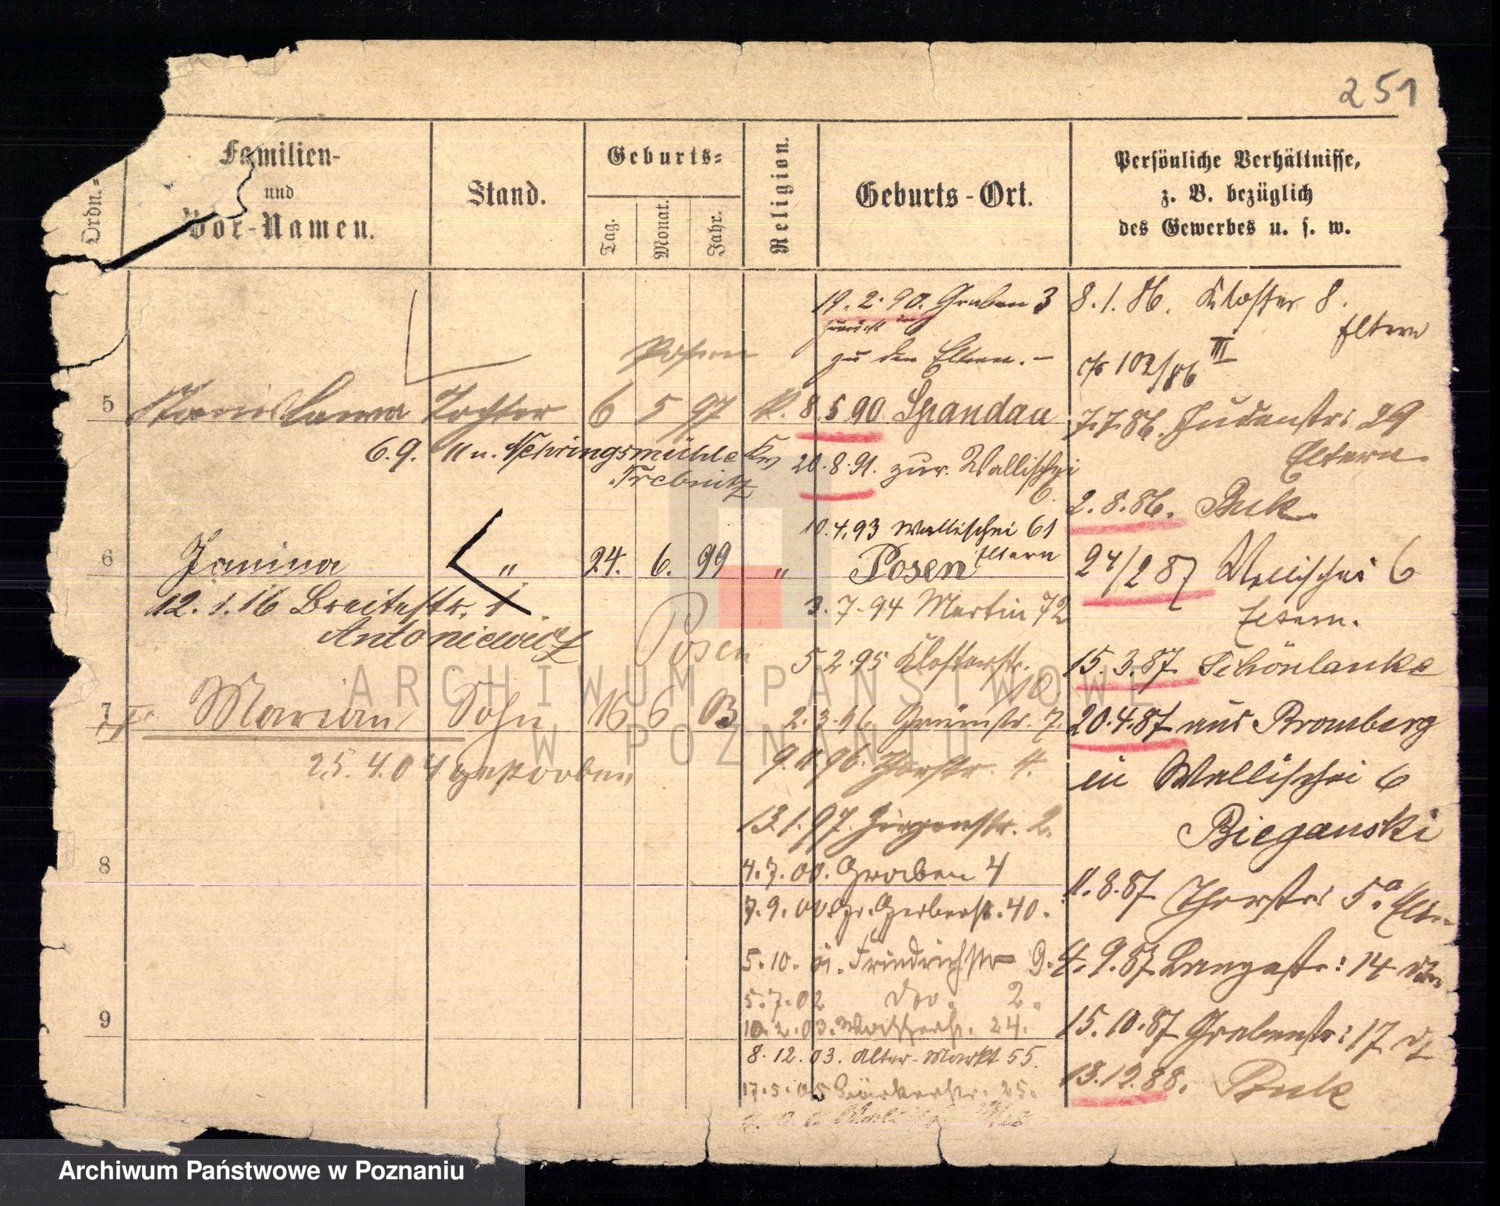 251
Ordn.=
Familien-
und
Vor-Namen.
Stand.
Geburts=
Tag.
Monat.
Jahr.
Religion.
Geburts-Ort.
Persönliche Verhältnisse,
z. B. bezüglich
des Gewerbes u. s. w.
19.2.90. Graben 3
zurück
zu den Eltern. –
Posen
5 Stanislawa Tochter 6 5 97 k. 8 5 90 Spandau
6.9. 11 n. Nehringsmühle Kr
Trebnitz
20.8.91. zur. Wallischei
6.
10.4.93 Wallischei 61
Eltern
6 Janina " 24. 6. 99 " Posen
12.1.16 Breitestr. 1
Antoniewicz
3.7.94 Martin 72
Posen
5.2.95 Klosterstr.
10
7 Marian Sohn 16 6 03 2.3.96. Grünstr. 7.
25.4.04 gestorben
9.11.96. Thorstr. 4.
13.1.97. 2.
8 4.7.00. Graben 4
7.9.00. Gr. Gerberstr. 40.
5.10.01. Friedrichstr 9.
5.7.02 do. 2.
9 10.2.03. Wasserstr. 24.
8.12.03. Alter-Markt 55.
17.5.05 25.
8.1.86. Kloster 8.
Eltern
102/86 III
7.7.86. Judenstr: 29
Eltern
2.8.86. Buk
24/2 87 Wallischei 6
Eltern.
15.3.87 Schönlanke
20.4.87 aus Bromberg
in Wallischei 6
Bieganski
11.8.87 Thorstr: 5a Eltern
4.9.87 Langestr: 14
15.10.87 Grabenstr: 17
13.12.88. Buk
ARCHIWUM PAŃSTWOWE
W POZNANIU
Archiwum Państwowe w Poznaniu